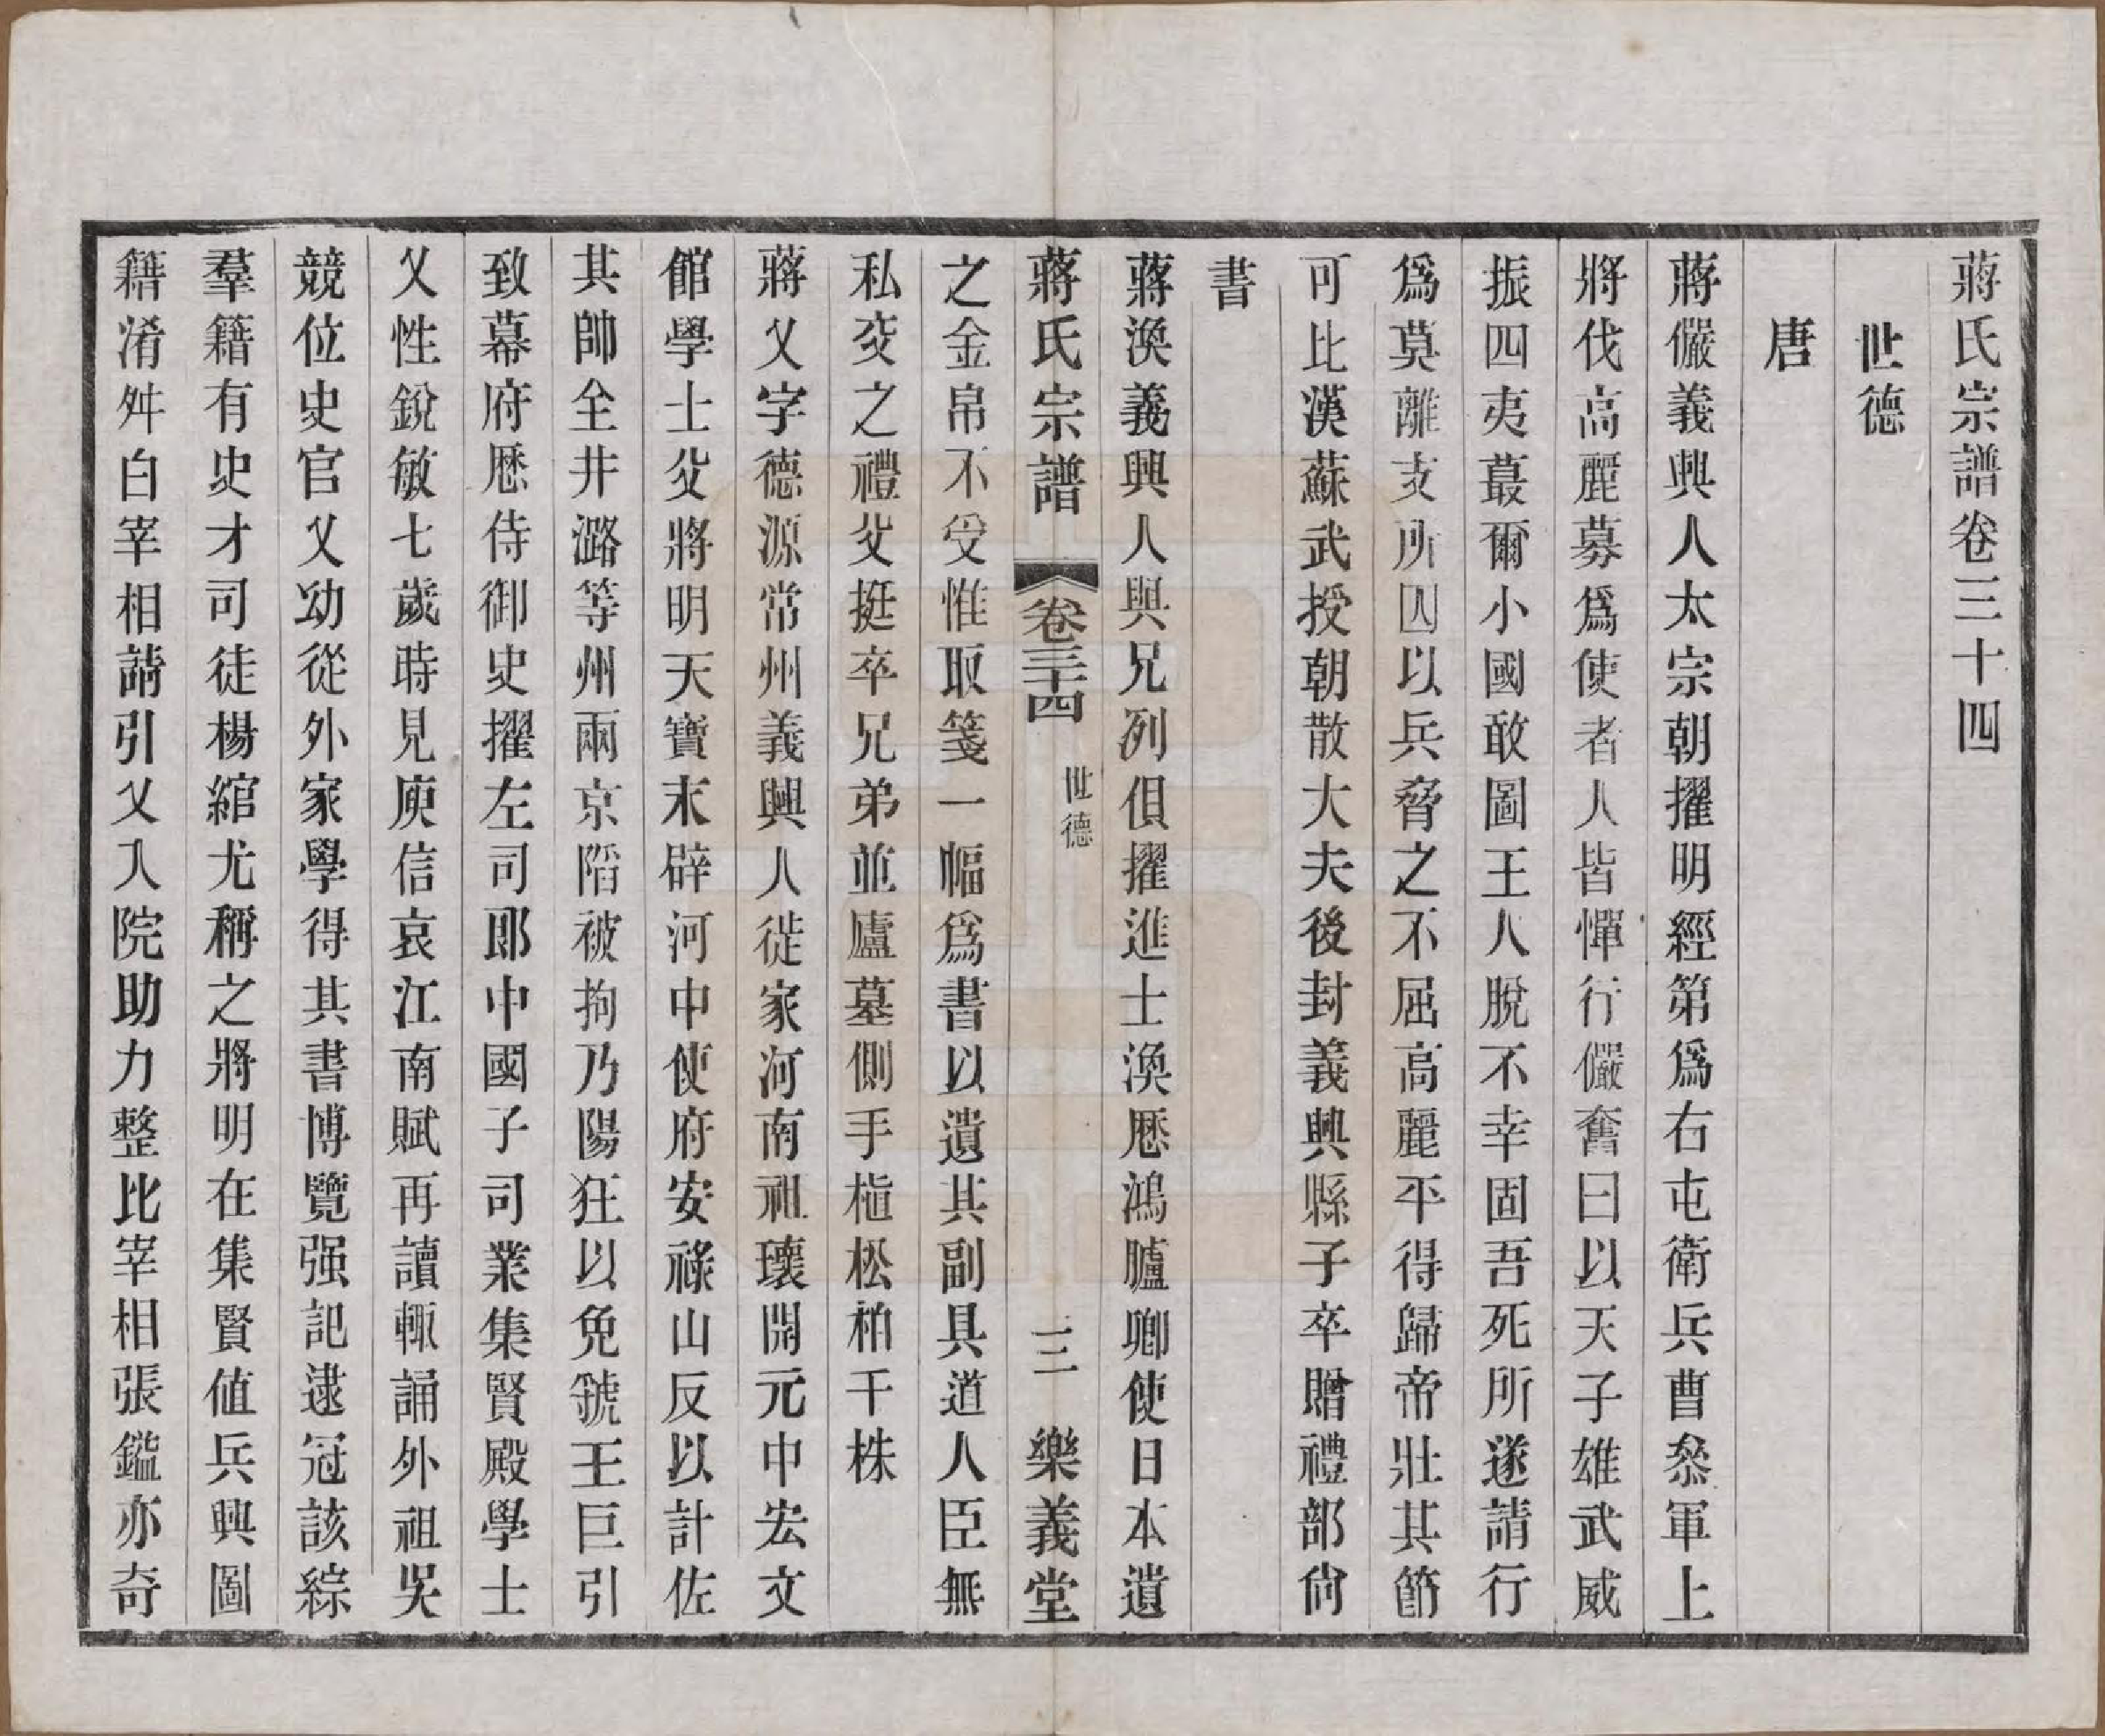 蔣氏宗譜卷三十四
世德
唐
蔣儼義興人太宗朝擢明經第爲右屯衛兵曹叅軍上
將伐高麗募爲使者人皆憚行儼奮曰以天子雄武威
振四夷蕞爾小國敢圖王人脫不幸固吾死所遂請行
爲莫離支所囚以兵脅之不屈高麗平得歸帝壯其節
可比漢蘇武授朝散大夫後封義興縣子卒贈禮部尙
書
蔣渙義興人與兄列俱擢進士渙厯鴻臚卿使日本遺
蔣氏宗譜 卷三十四 世德 三 樂義堂
之金帛不受惟取箋一幅爲書以遺其副具道人臣無
私交之禮父挺卒兄弟並廬墓側手植松柏千株
蔣乂字德源常州義興人徙家河南祖瓌開元中宏文
館學士父將明天寶末辟河中使府安祿山反以計佐
其帥全井潞等州兩京陷被拘乃陽狂以免虢王巨引
致幕府厯侍御史擢左司郎中國子司業集賢殿學士
乂性銳敏七歲時見庾信哀江南賦再讀輒誦外祖吳
競位史官乂幼從外家學得其書博覽强記逮冠該綜
羣籍有史才司徒楊綰尤稱之將明在集賢值兵興圖
籍淆舛白宰相請引乂入院助力整比宰相張鎰亦奇